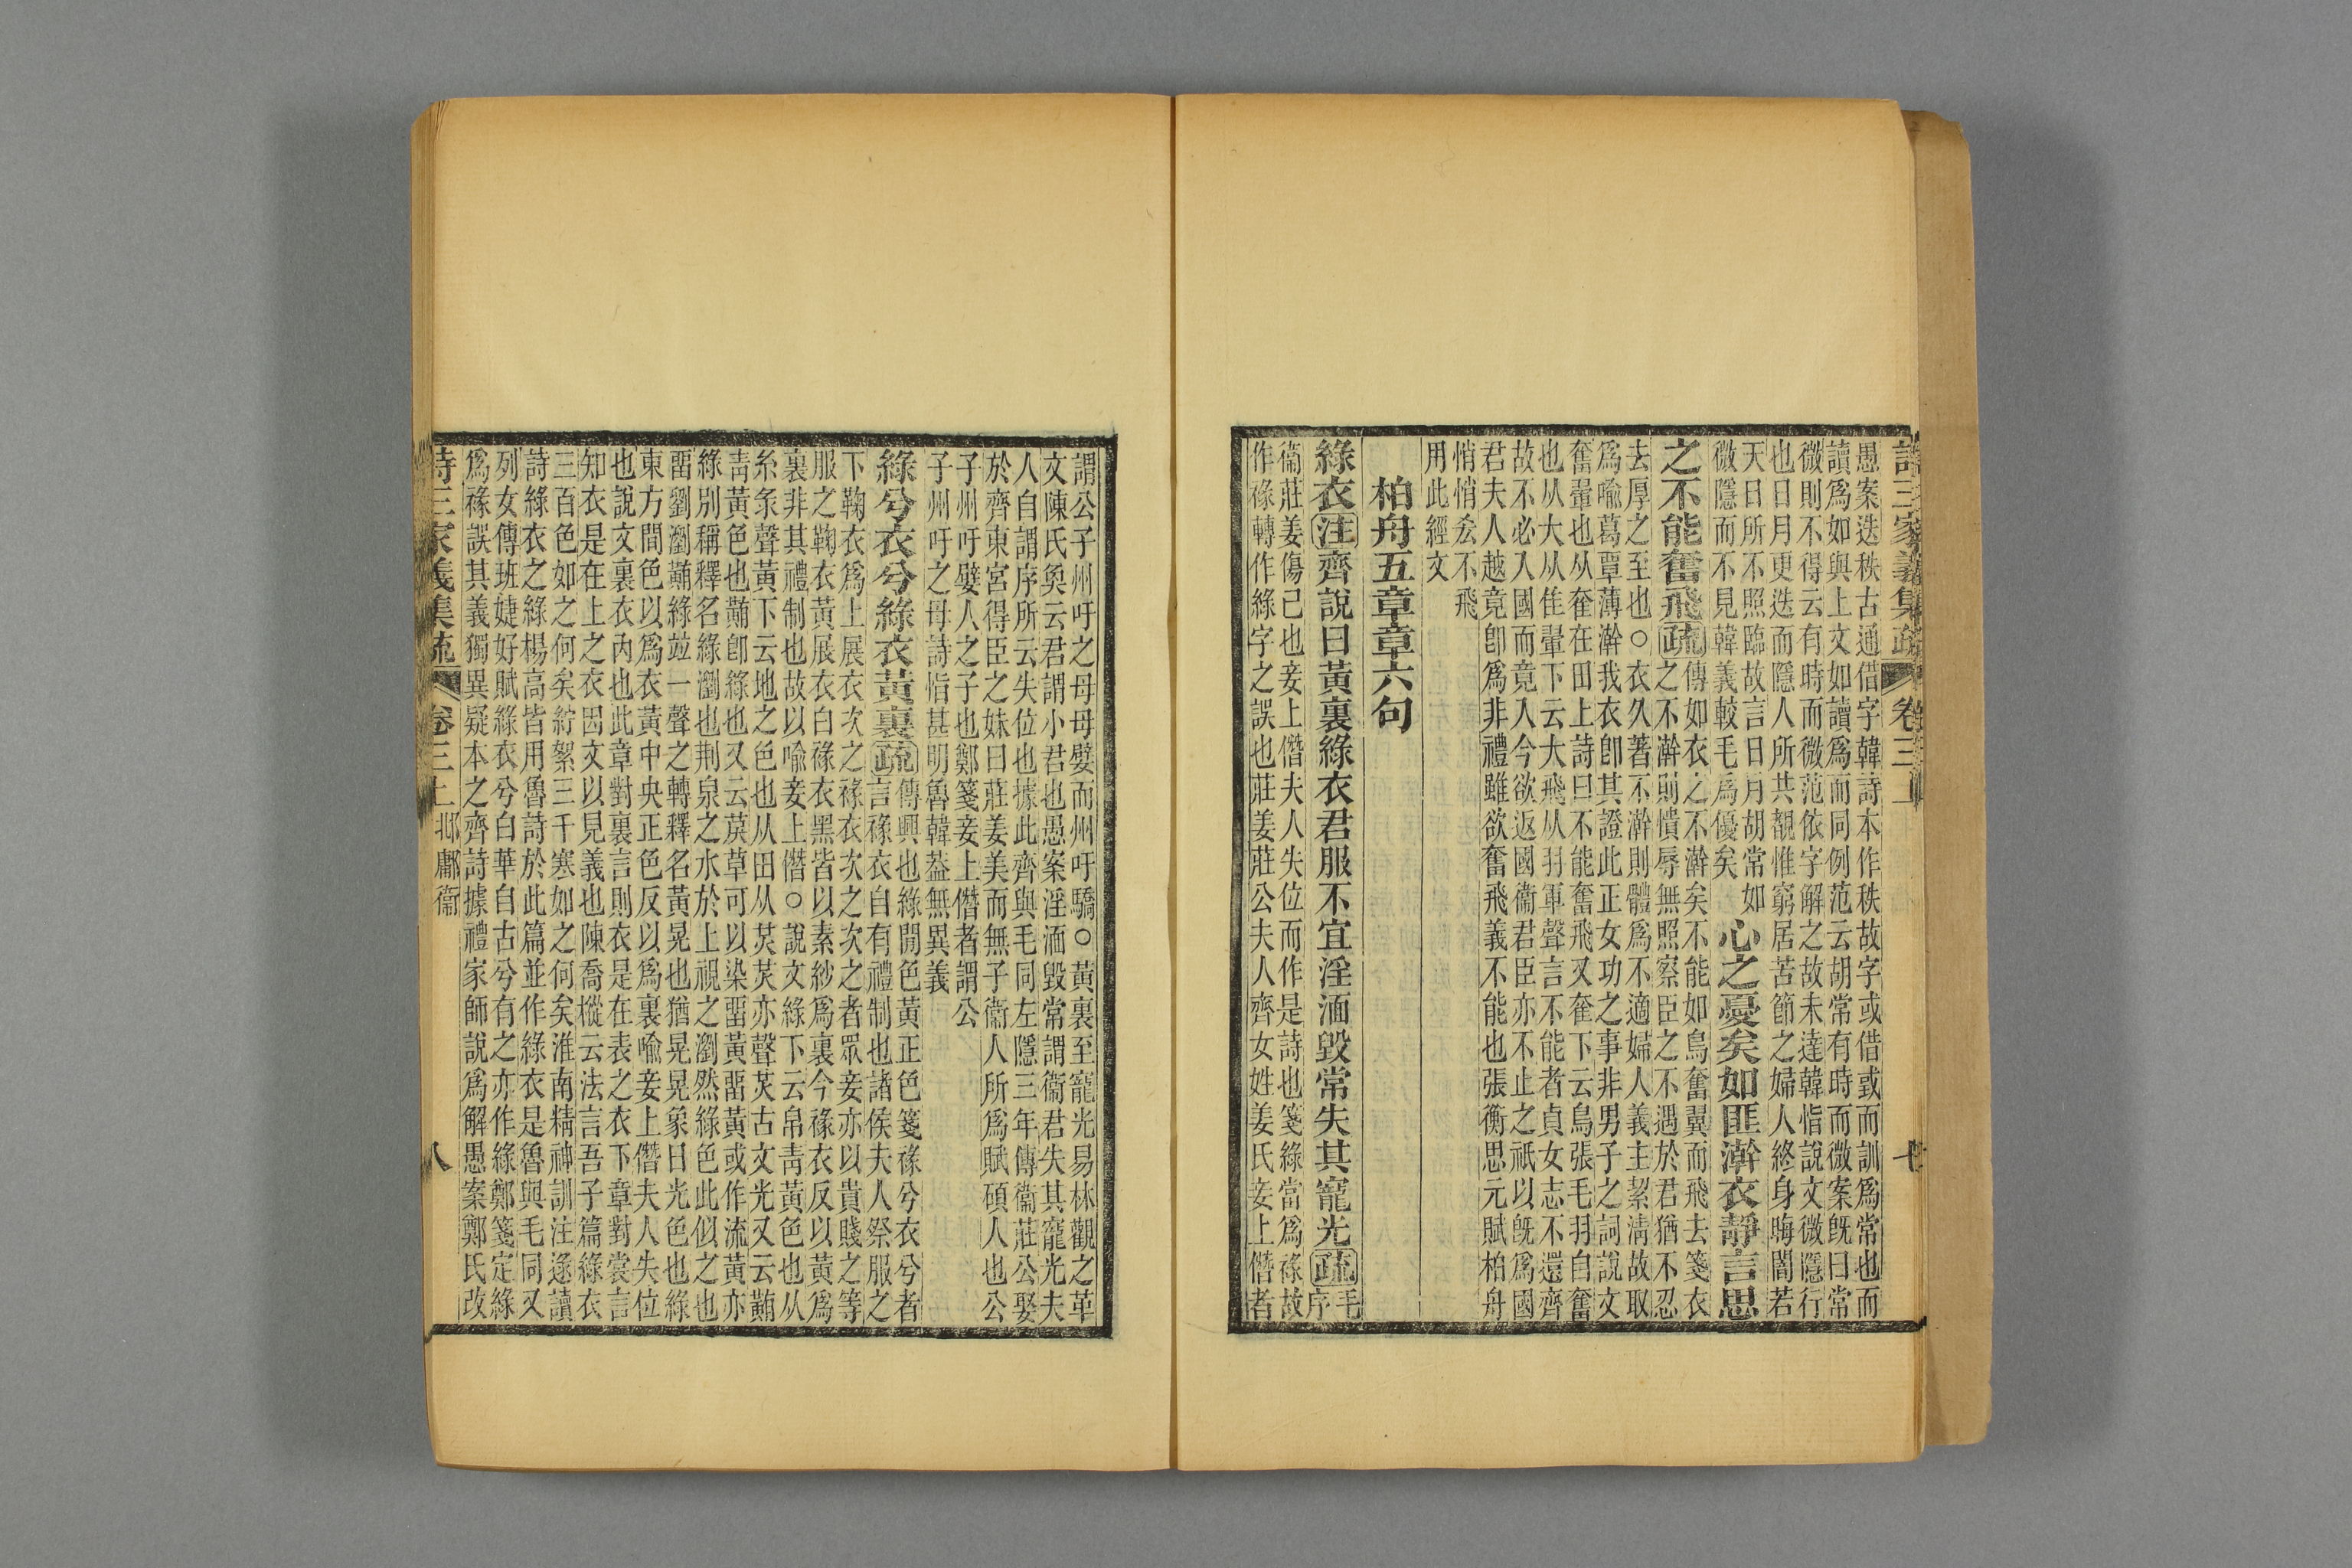 詩三家義集疏 卷三上 七
愚案迭秩古通借字韓詩本作秩故字或借或而訓爲常也而
讀爲如與上文如讀爲而同例范云胡常有時而微案旣曰常
微則不得云有時而微范依字解之故未達韓恉說文微隱行
也日月更迭而隱人所共覩惟窮居苦節之婦人終身晦闇若
天日所不照臨故言日月胡常如
微隱而不見韓義較毛爲優矣
心之憂矣如匪澣衣靜言思
之不能奮飛疏
傳如衣之不澣矣不能如鳥奮翼而飛去箋衣
之不澣則憒辱無照察臣之不遇於君猶不忍
去厚之至也○衣久著不澣則體爲不適婦人義主絜淸故取
爲喻葛覃薄澣我衣卽其證此正女功之事非男子之詞說文
奮翬也从奞在田上詩曰不能奮飛又奞下云鳥張毛羽自奮
也从大从隹翬下云大飛从羽軍聲言不能者貞女志不還齊
故不必入國而竟入今欲返國衞君臣亦不止之祇以旣爲國
君夫人越竟卽爲非禮雖欲奮飛義不能也張衡思元賦柏舟
悄悄㕕不飛
用此經文
柏舟五章章六句
綠衣注齊說曰黃裏綠衣君服不宜淫湎毀常失其寵光疏
毛
序
衞莊姜傷己也妾上僭夫人失位而作是詩也箋綠當爲褖故
作褖轉作綠字之誤也莊姜莊公夫人齊女姓姜氏妾上僭者
謂公子州吁之母母嬖而州吁驕○黃裏至寵光易林觀之革
文陳氏奐云君謂小君也愚案淫湎毀常謂衞君失其寵光夫
人自謂序所云失位也據此齊與毛同左隱三年傳衞莊公娶
於齊東宮得臣之妹曰莊姜美而無子衞人所爲賦碩人也公
子州吁嬖人之子也鄭箋妾上僭者謂公
子州吁之母詩恉甚明魯韓葢無異義
綠兮衣兮綠衣黃裏疏
傳興也綠閒色黃正色箋褖兮衣兮者
言褖衣自有禮制也諸侯夫人祭服之
下鞠衣爲上展衣次之褖衣次之次之者眾妾亦以貴賤之等
服之鞠衣黃展衣白褖衣黑皆以素紗爲裏今褖衣反以黃爲
裏非其禮制也故以喻妾上僭○說文綠下云帛靑黃色也从
糸彔聲黃下云地之色也从田从炗炗亦聲炗古文光又云𪏀
靑黃色也𪏀卽綠也又云莀草可以染留黃留黃或作流黃亦
綠別稱釋名綠瀏也荆泉之水於上視之瀏然綠色此似之也
留劉瀏𪏀綠竝一聲之轉釋名黃晃也猶晃晃象日光色也綠
東方間色以爲衣黃中央正色反以爲裏喻妾上僭夫人失位
也說文裏衣內也此章對裏言則衣是在表之衣下章對裳言
知衣是在上之衣因文以見義也陳喬樅云法言吾子篇綠衣
三百色如之何矣紵絮三千寒如之何矣淮南精神訓注逐讀
詩綠衣之綠楊高皆用魯詩於此篇並作綠衣是魯與毛同又
列女傳班婕妤賦綠衣兮白華自古兮有之亦作綠鄭箋定綠
爲褖誤其義獨異疑本之齊詩據禮家師說爲解愚案鄭氏改
詩三家義集疏 卷三上 邶鄘衞 八